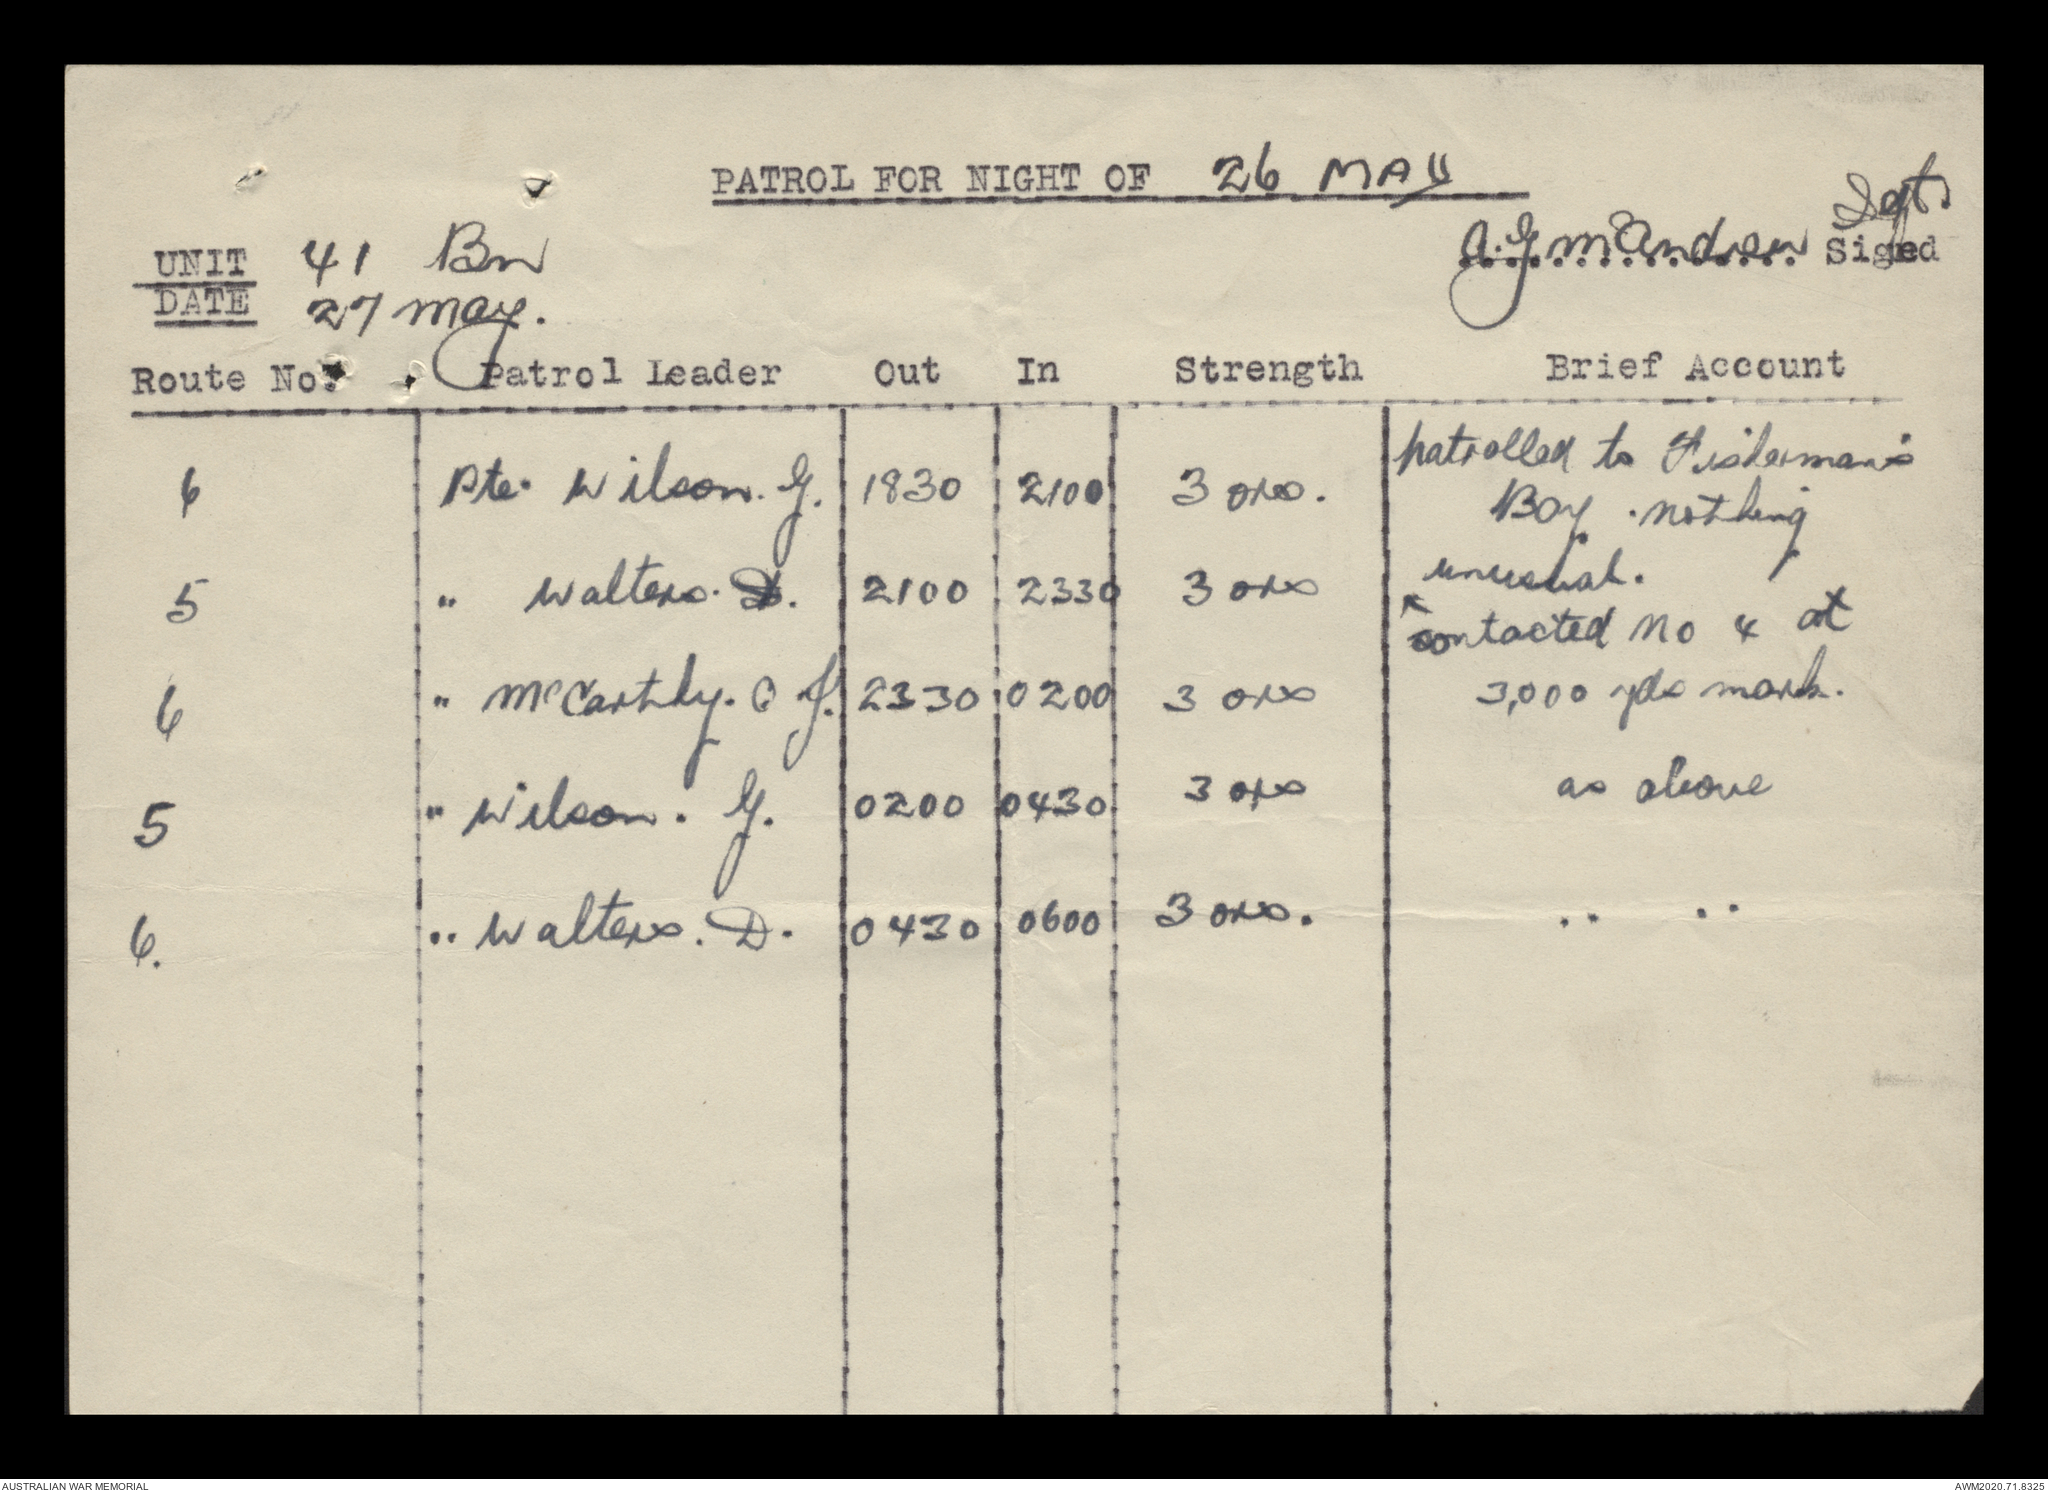 PATROL FOR NIGHT OF 26 MAY
Sgt.
A.G. McAndrew Signed
UNIT 41 Bn
DATE 27 May.
Route No. Patrol Leader Out In Strength Brief Account
6 Pte. Wilson. G. 1830 2100 3 ors. patrolled to Fisherman's
Bay. nothing
unusual.
5 " Walters. D. 2100 2330 3 ors contacted No 4 at
6 " McCarthy. C J. 2330 0200 3 ors 3,000 yds mark.
5 " Wilson. G. 0200 0430 3 ors as above
6. " Walters. D. 0430 0600 3 ors. " "
AUSTRALIAN WAR MEMORIAL
AWM2020.71.8325